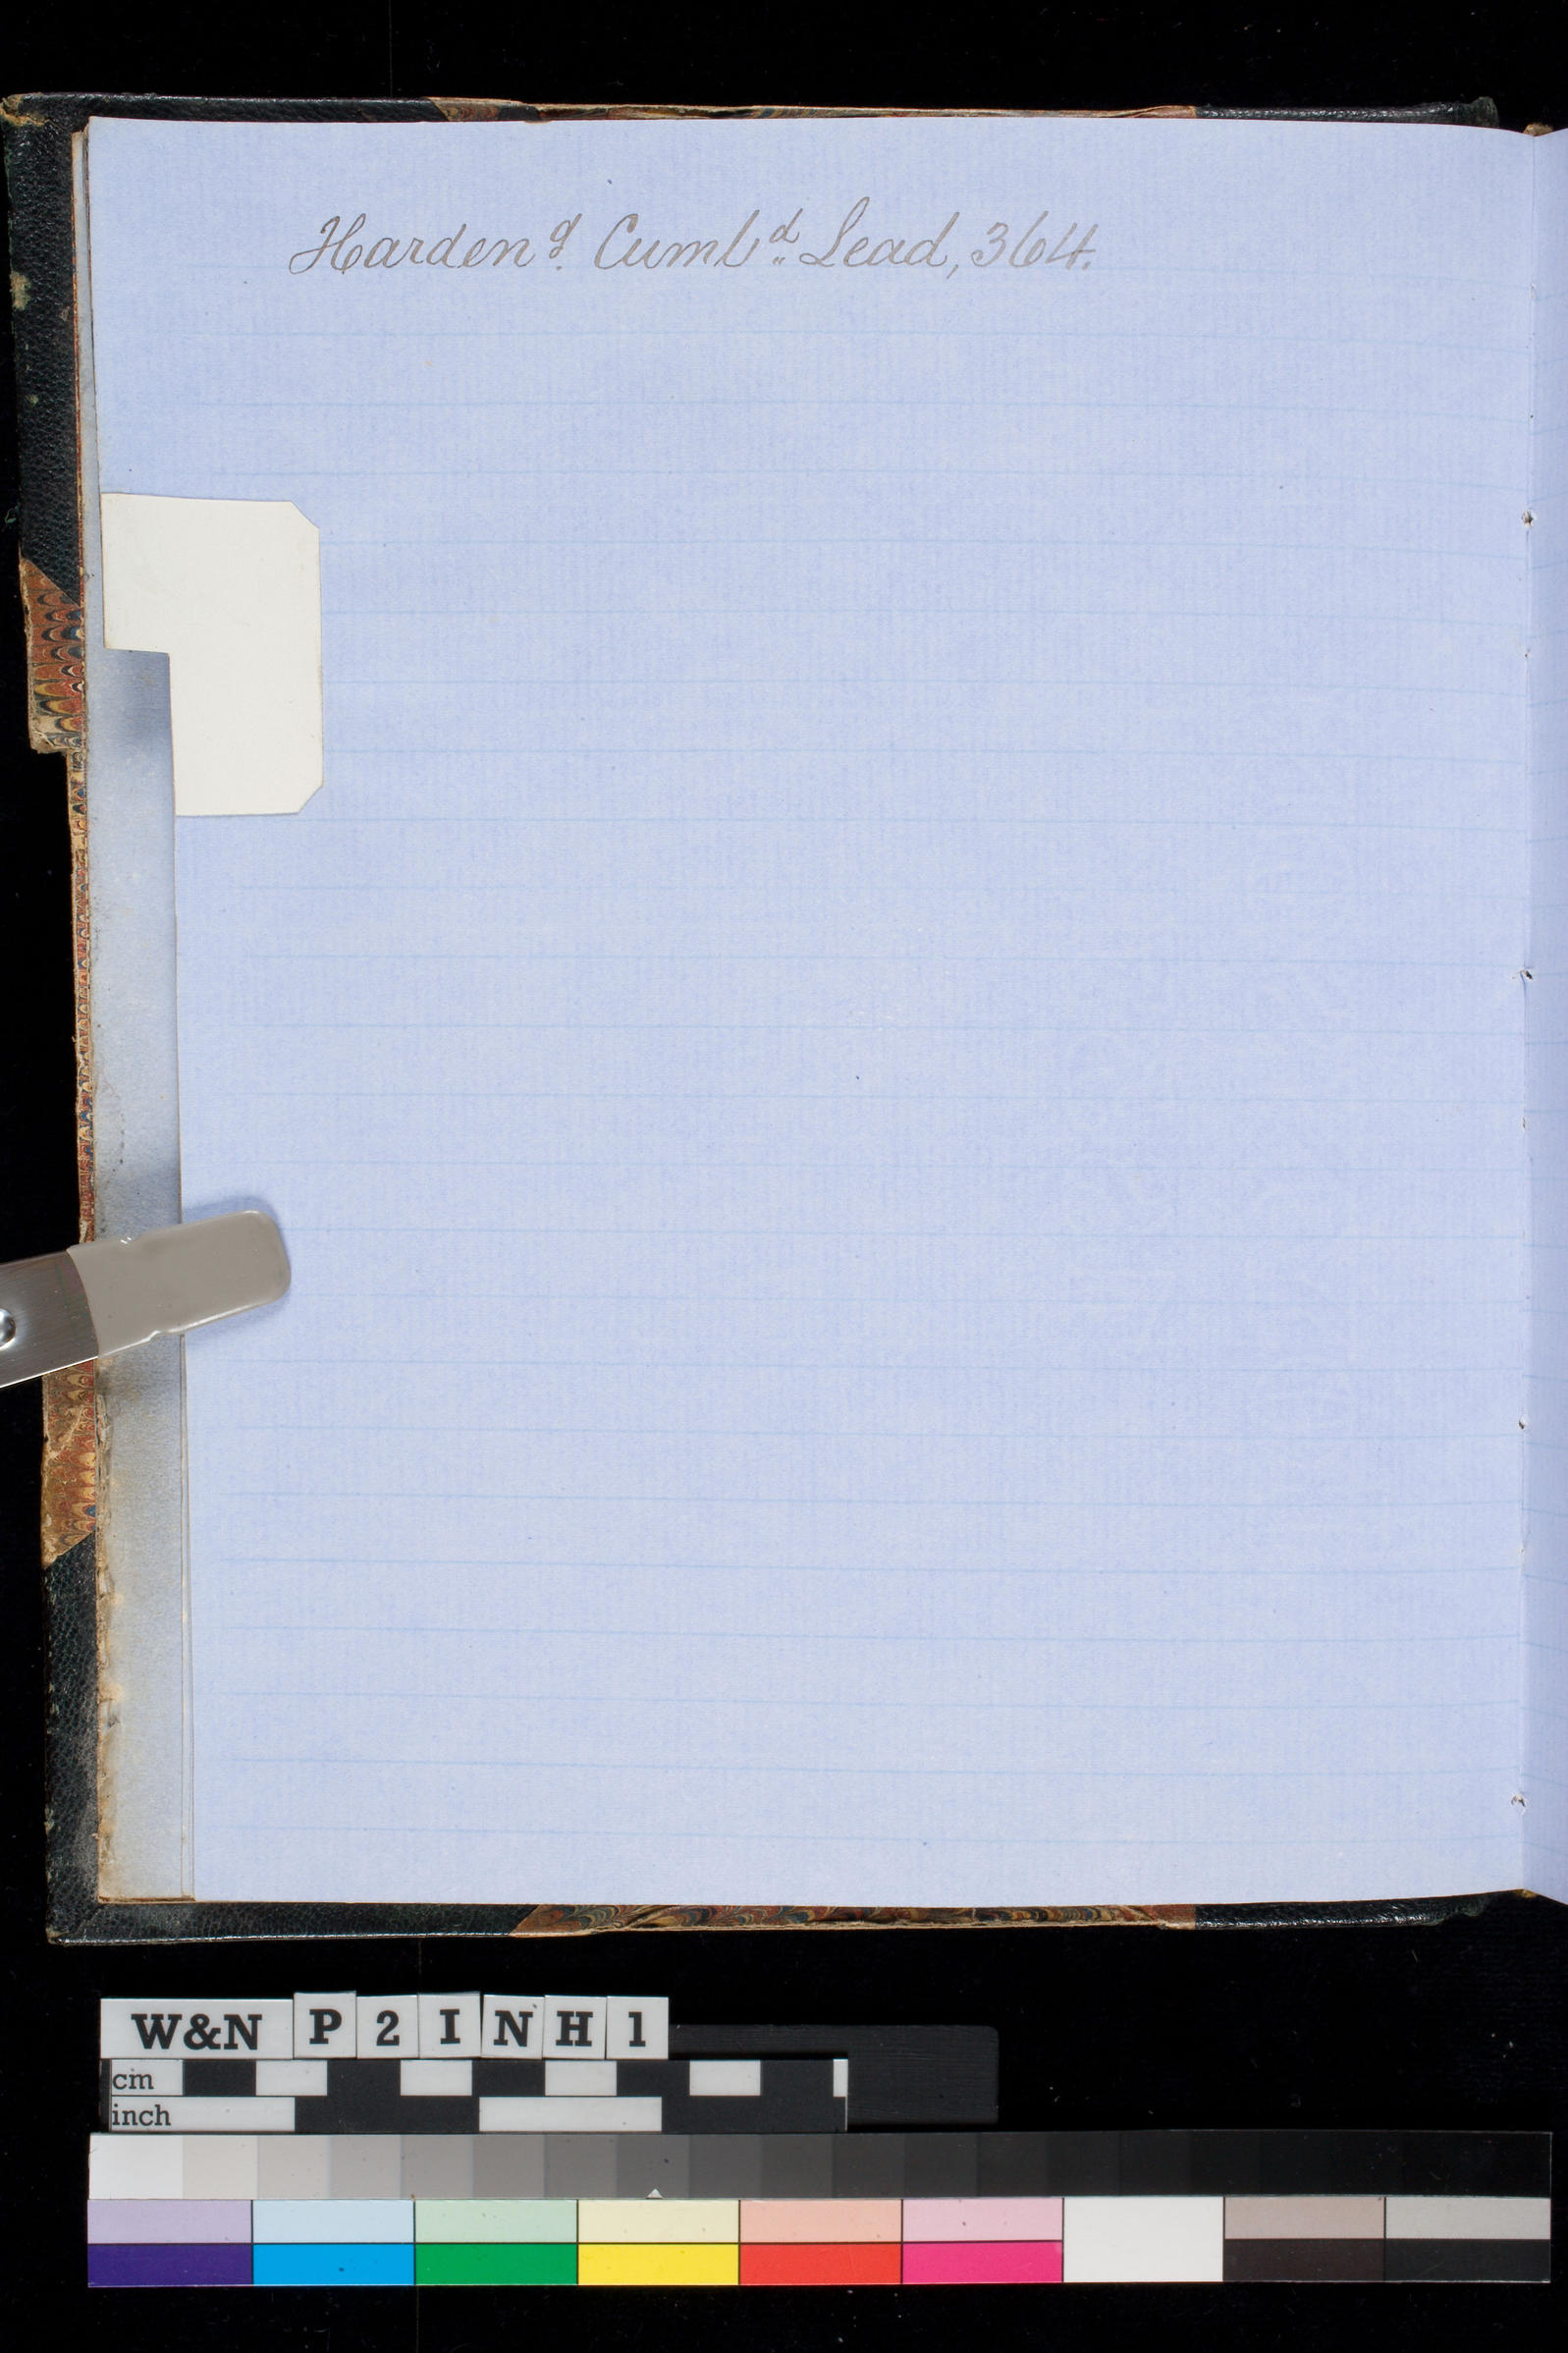 Harden^g. Cumb^d. Lead, 364.
W&N P 2 I N H 1
cm
inch